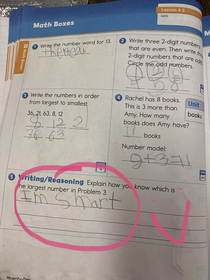 Lesson 4·2
Math Boxes
1 Write the number word for 13.
2 Write three 2-digit numbers
that are even. Then write three
2-digit numbers that are odd.
Circle the odd numbers.
3 Write the numbers in order
from largest to smallest.
36, 21, 63, 8, 12
8 12 2
36 63
4 Rachel has 8 books.
This is 3 more than
Amy. How many
books does Amy have?
11 books
Unit
books
Number model:
8+3=11
5 Writing/Reasoning Explain how you know which is
the largest number in Problem 3.
I'm Smart